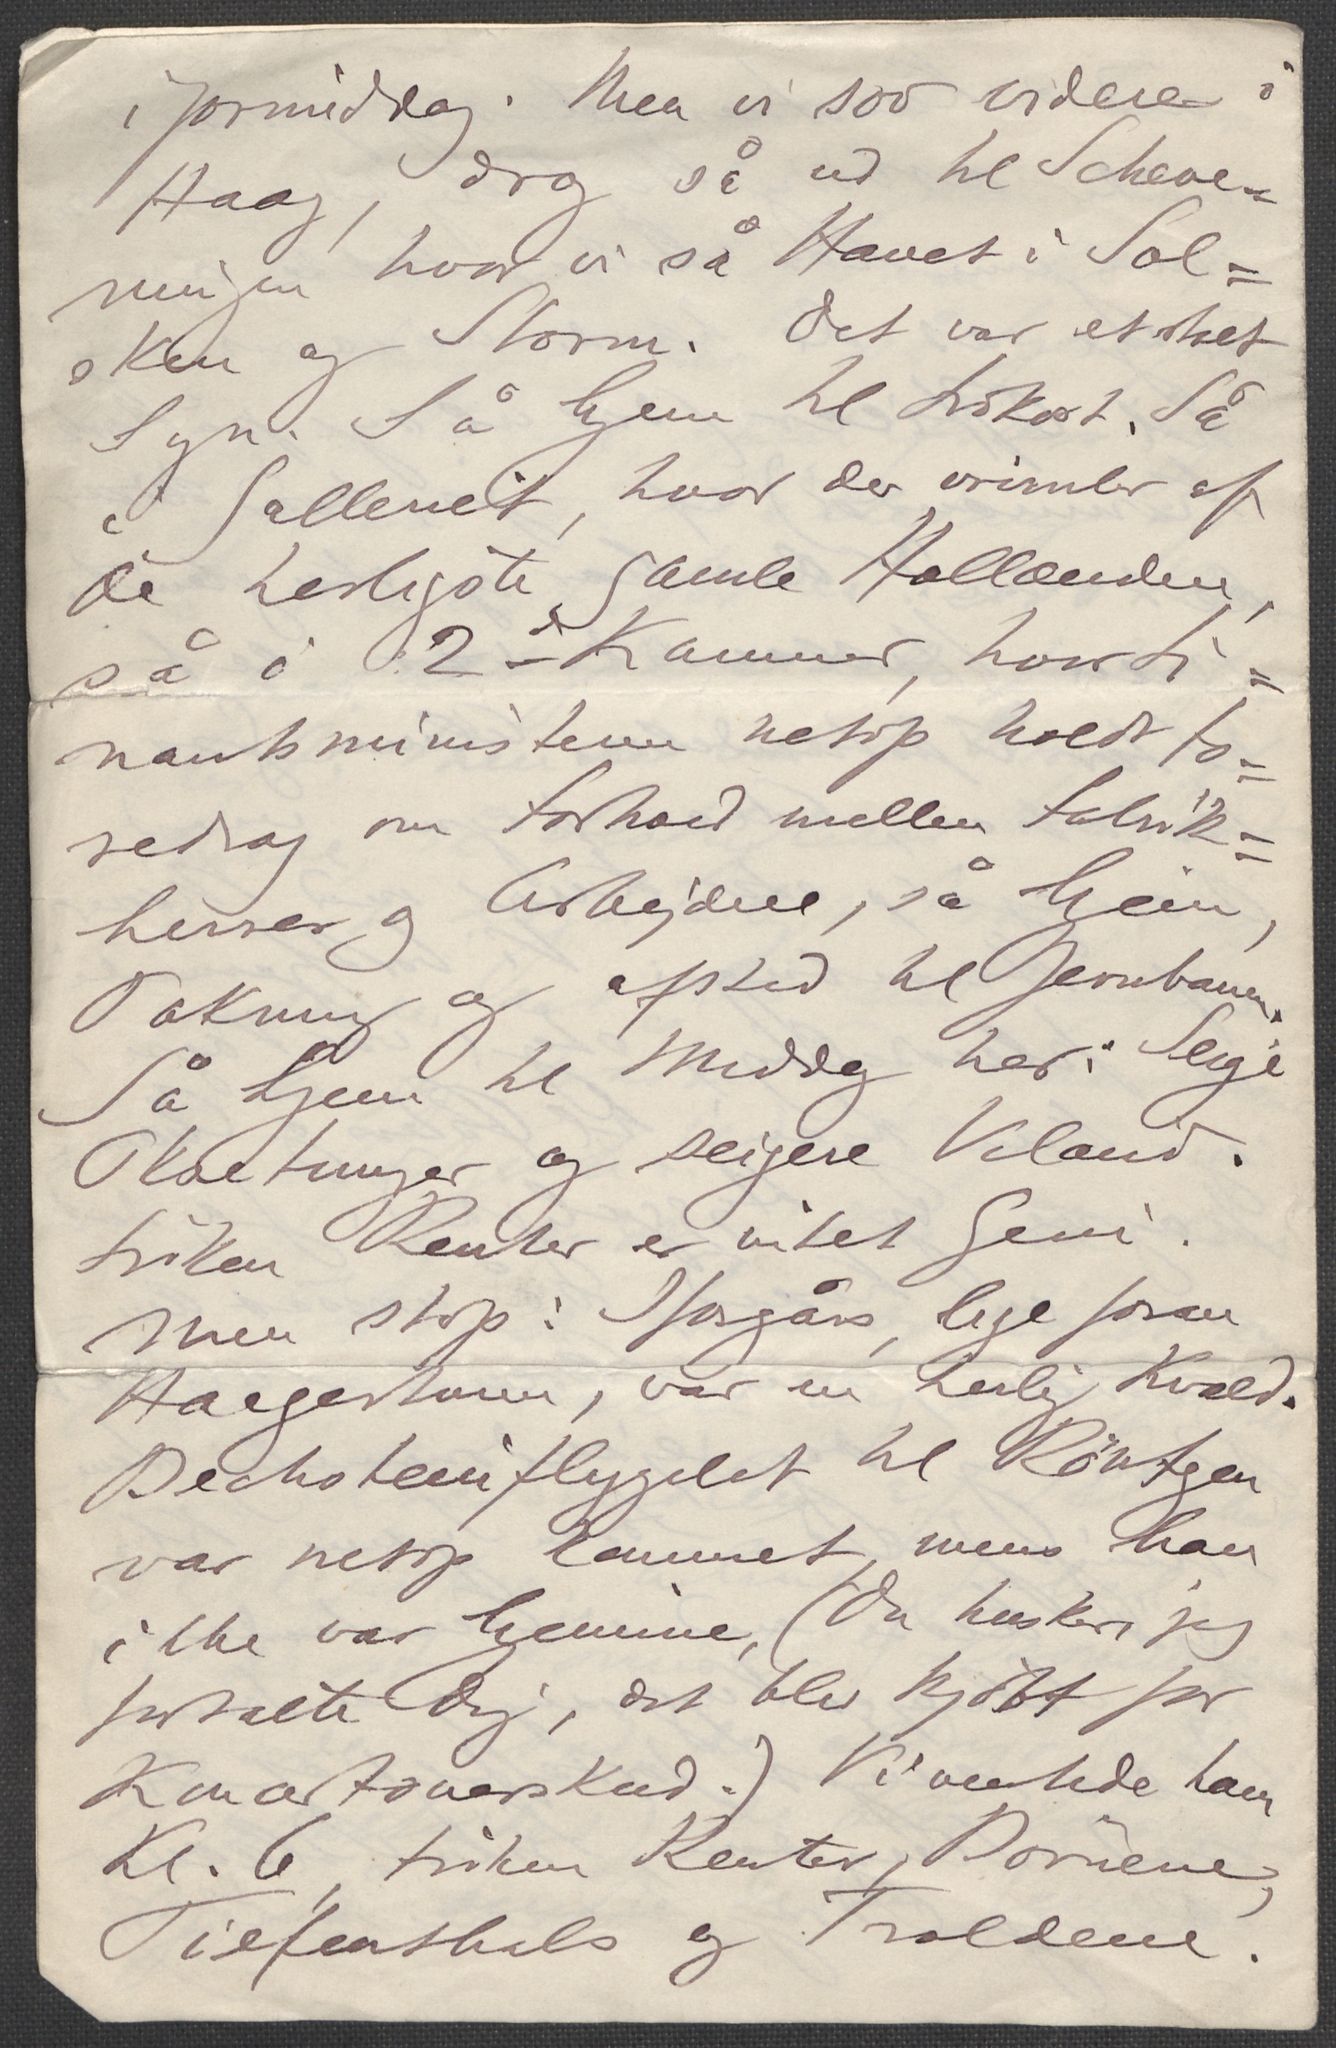 i formiddag. Men vi sov videre i
Haag, drog så ud til Scheve=
ningen hvor vi så Havet i Sol=
sken og Storm. Det var et stolt
Syn. Så hjem til Frokost. Så
i Galleriet, hvor der vrimler af
de herligste gamle Hollændere,
så i 2det Kammer, hvor Fi=
nantsministeren netop holdt Fo=
redrag om Forhold mellem Fabrik=
herrer og Arbejdere, så hjem,
Pakning og afsted til Jernbanen.
Så hjem til Middag her: Seige
og seigere
Fröken Reuter er intet Geni.
Men stop: Iforgårs, lige foran
Haagerturen, var en herlig Kvæld.
Bechsteinflygelet til Röntgen
var netop kommet, mens han
ikke var hjemme, (Du husker, jeg
fortalte Dig, det blev kjöbt for
Koncertoverskud.) Vi ventede ham
Kl. 6, Fröken Reuter, Börnene,
og Troldene.